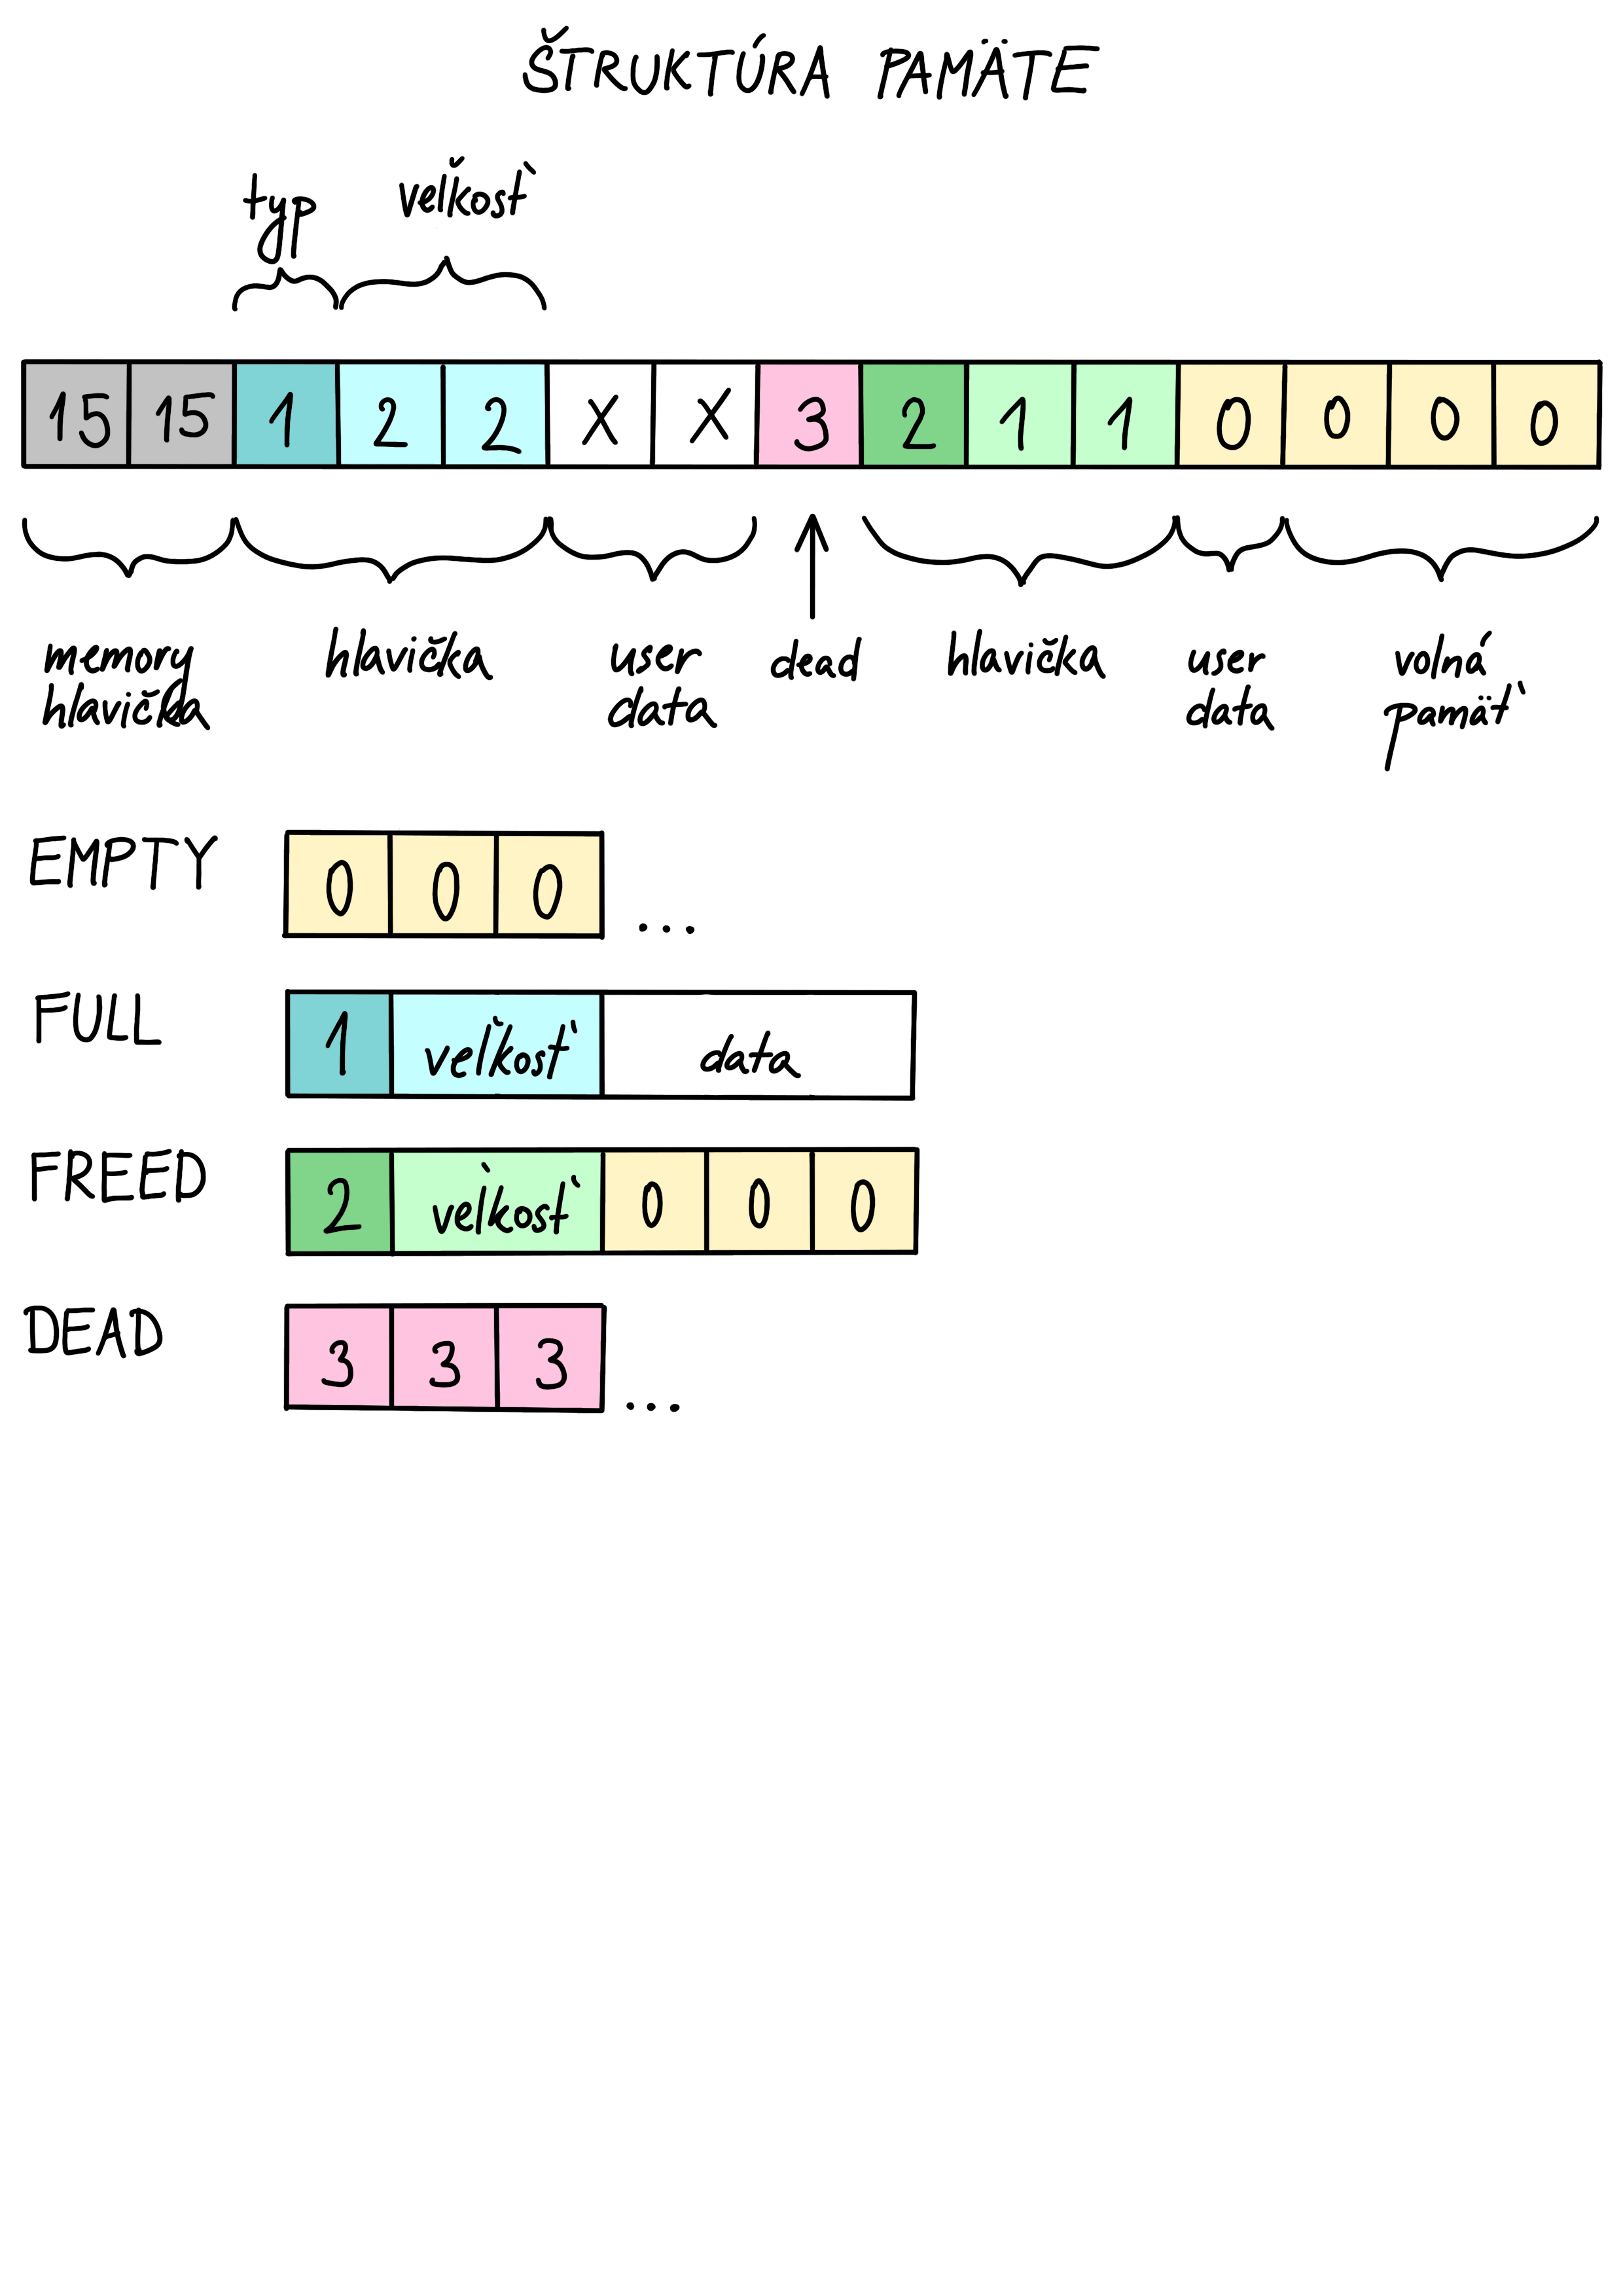 ŠTRUKTÚRA PAMÄTE
typ veľkosť
15 15 1 2 2 X X 3 2 1 1 0 0 0 0
memory hlavička user dead hlavička user volná
hlavička data data pamäť
EMPTY 0 0 0 ...
FULL 1 veľkosť data
FREED 2 veľkosť 0 0 0
DEAD 3 3 3 ...